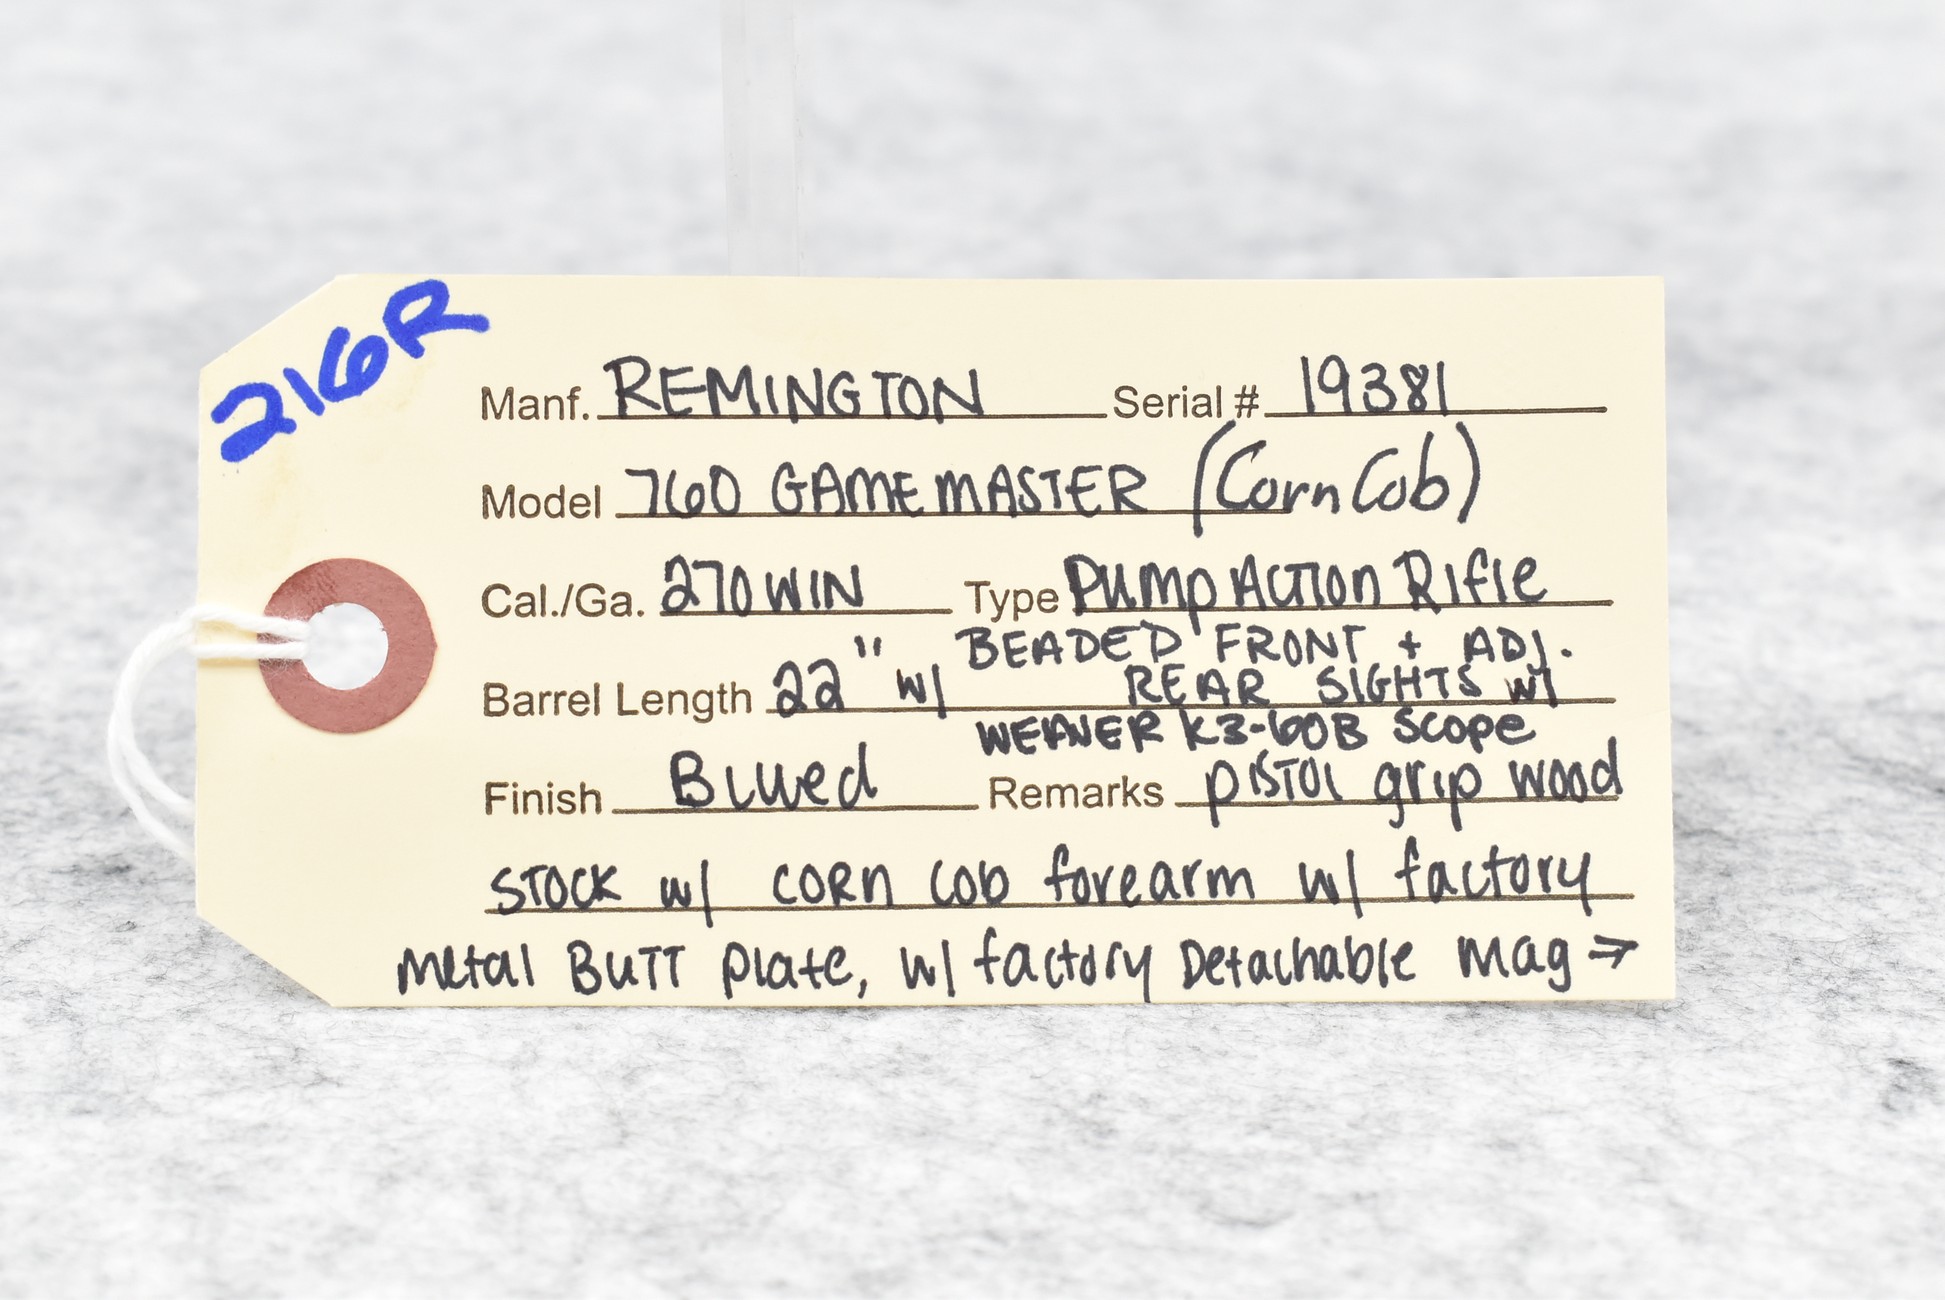 216R
Manf. REMINGTON Serial # 19381
Model 760 GAMEMASTER (Corn Cob)
Cal./Ga. 270 WIN Type Pump Action Rifle
BEADED FRONT + ADJ.
Barrel Length 22" w/ REAR SIGHTS w/
WEAVER K3-60B Scope
Finish Blued Remarks pistol grip wood
STOCK w/ corn cob forearm w/ factory
metal Butt plate, w/ factory Detachable mag →